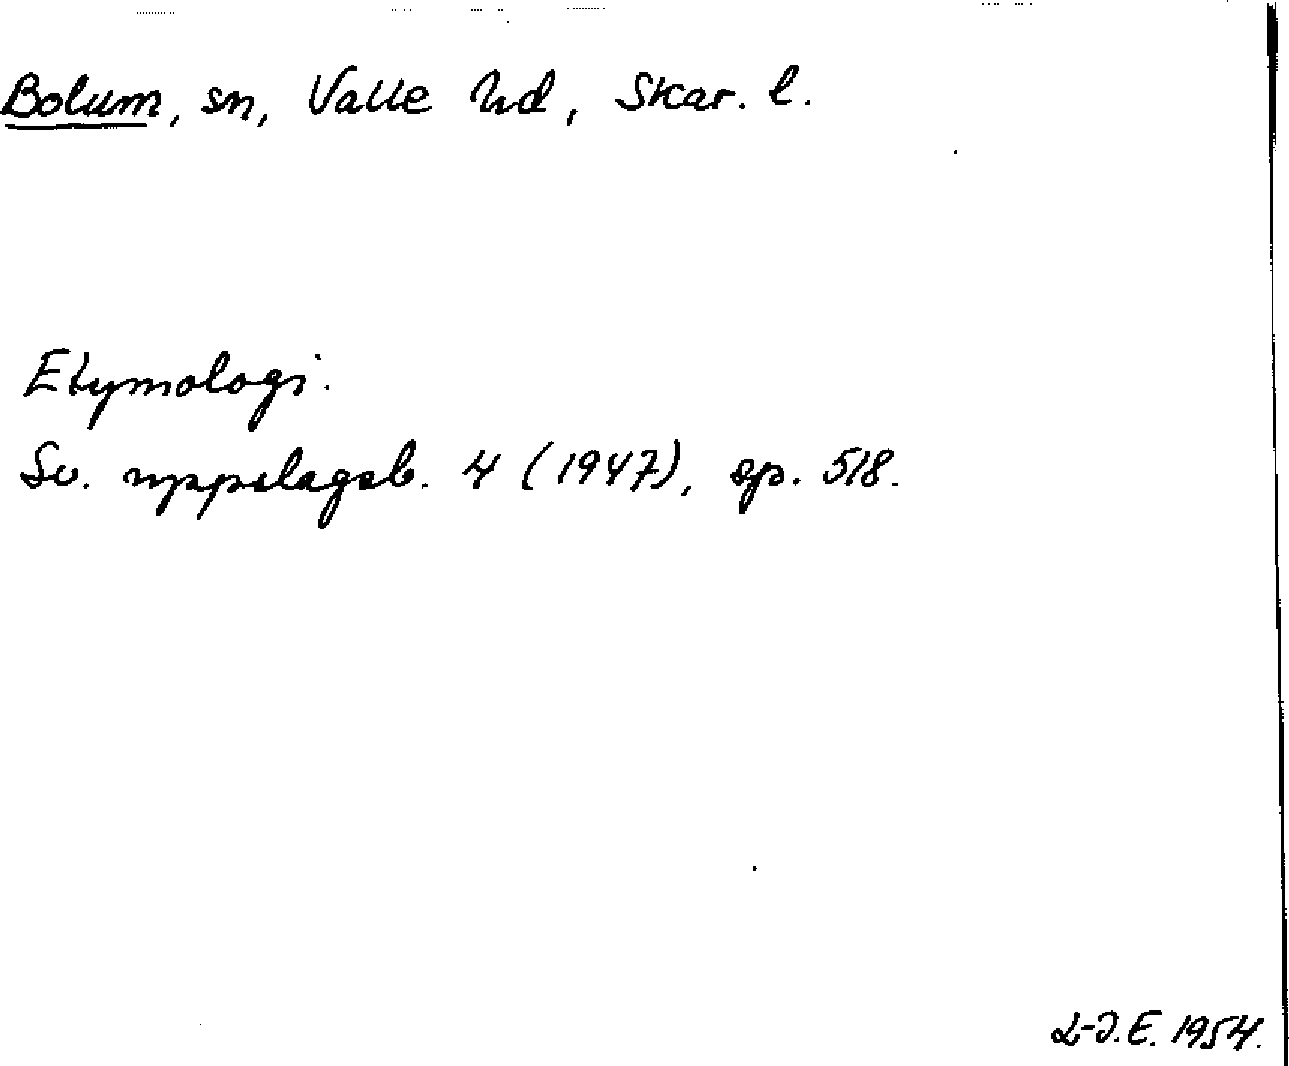 Bolum, sn, Valle hd, Skar. l.
Etymologi.
Sv. uppslagsb. 4 (1947), sp. 518.
L-J.E. 1954.